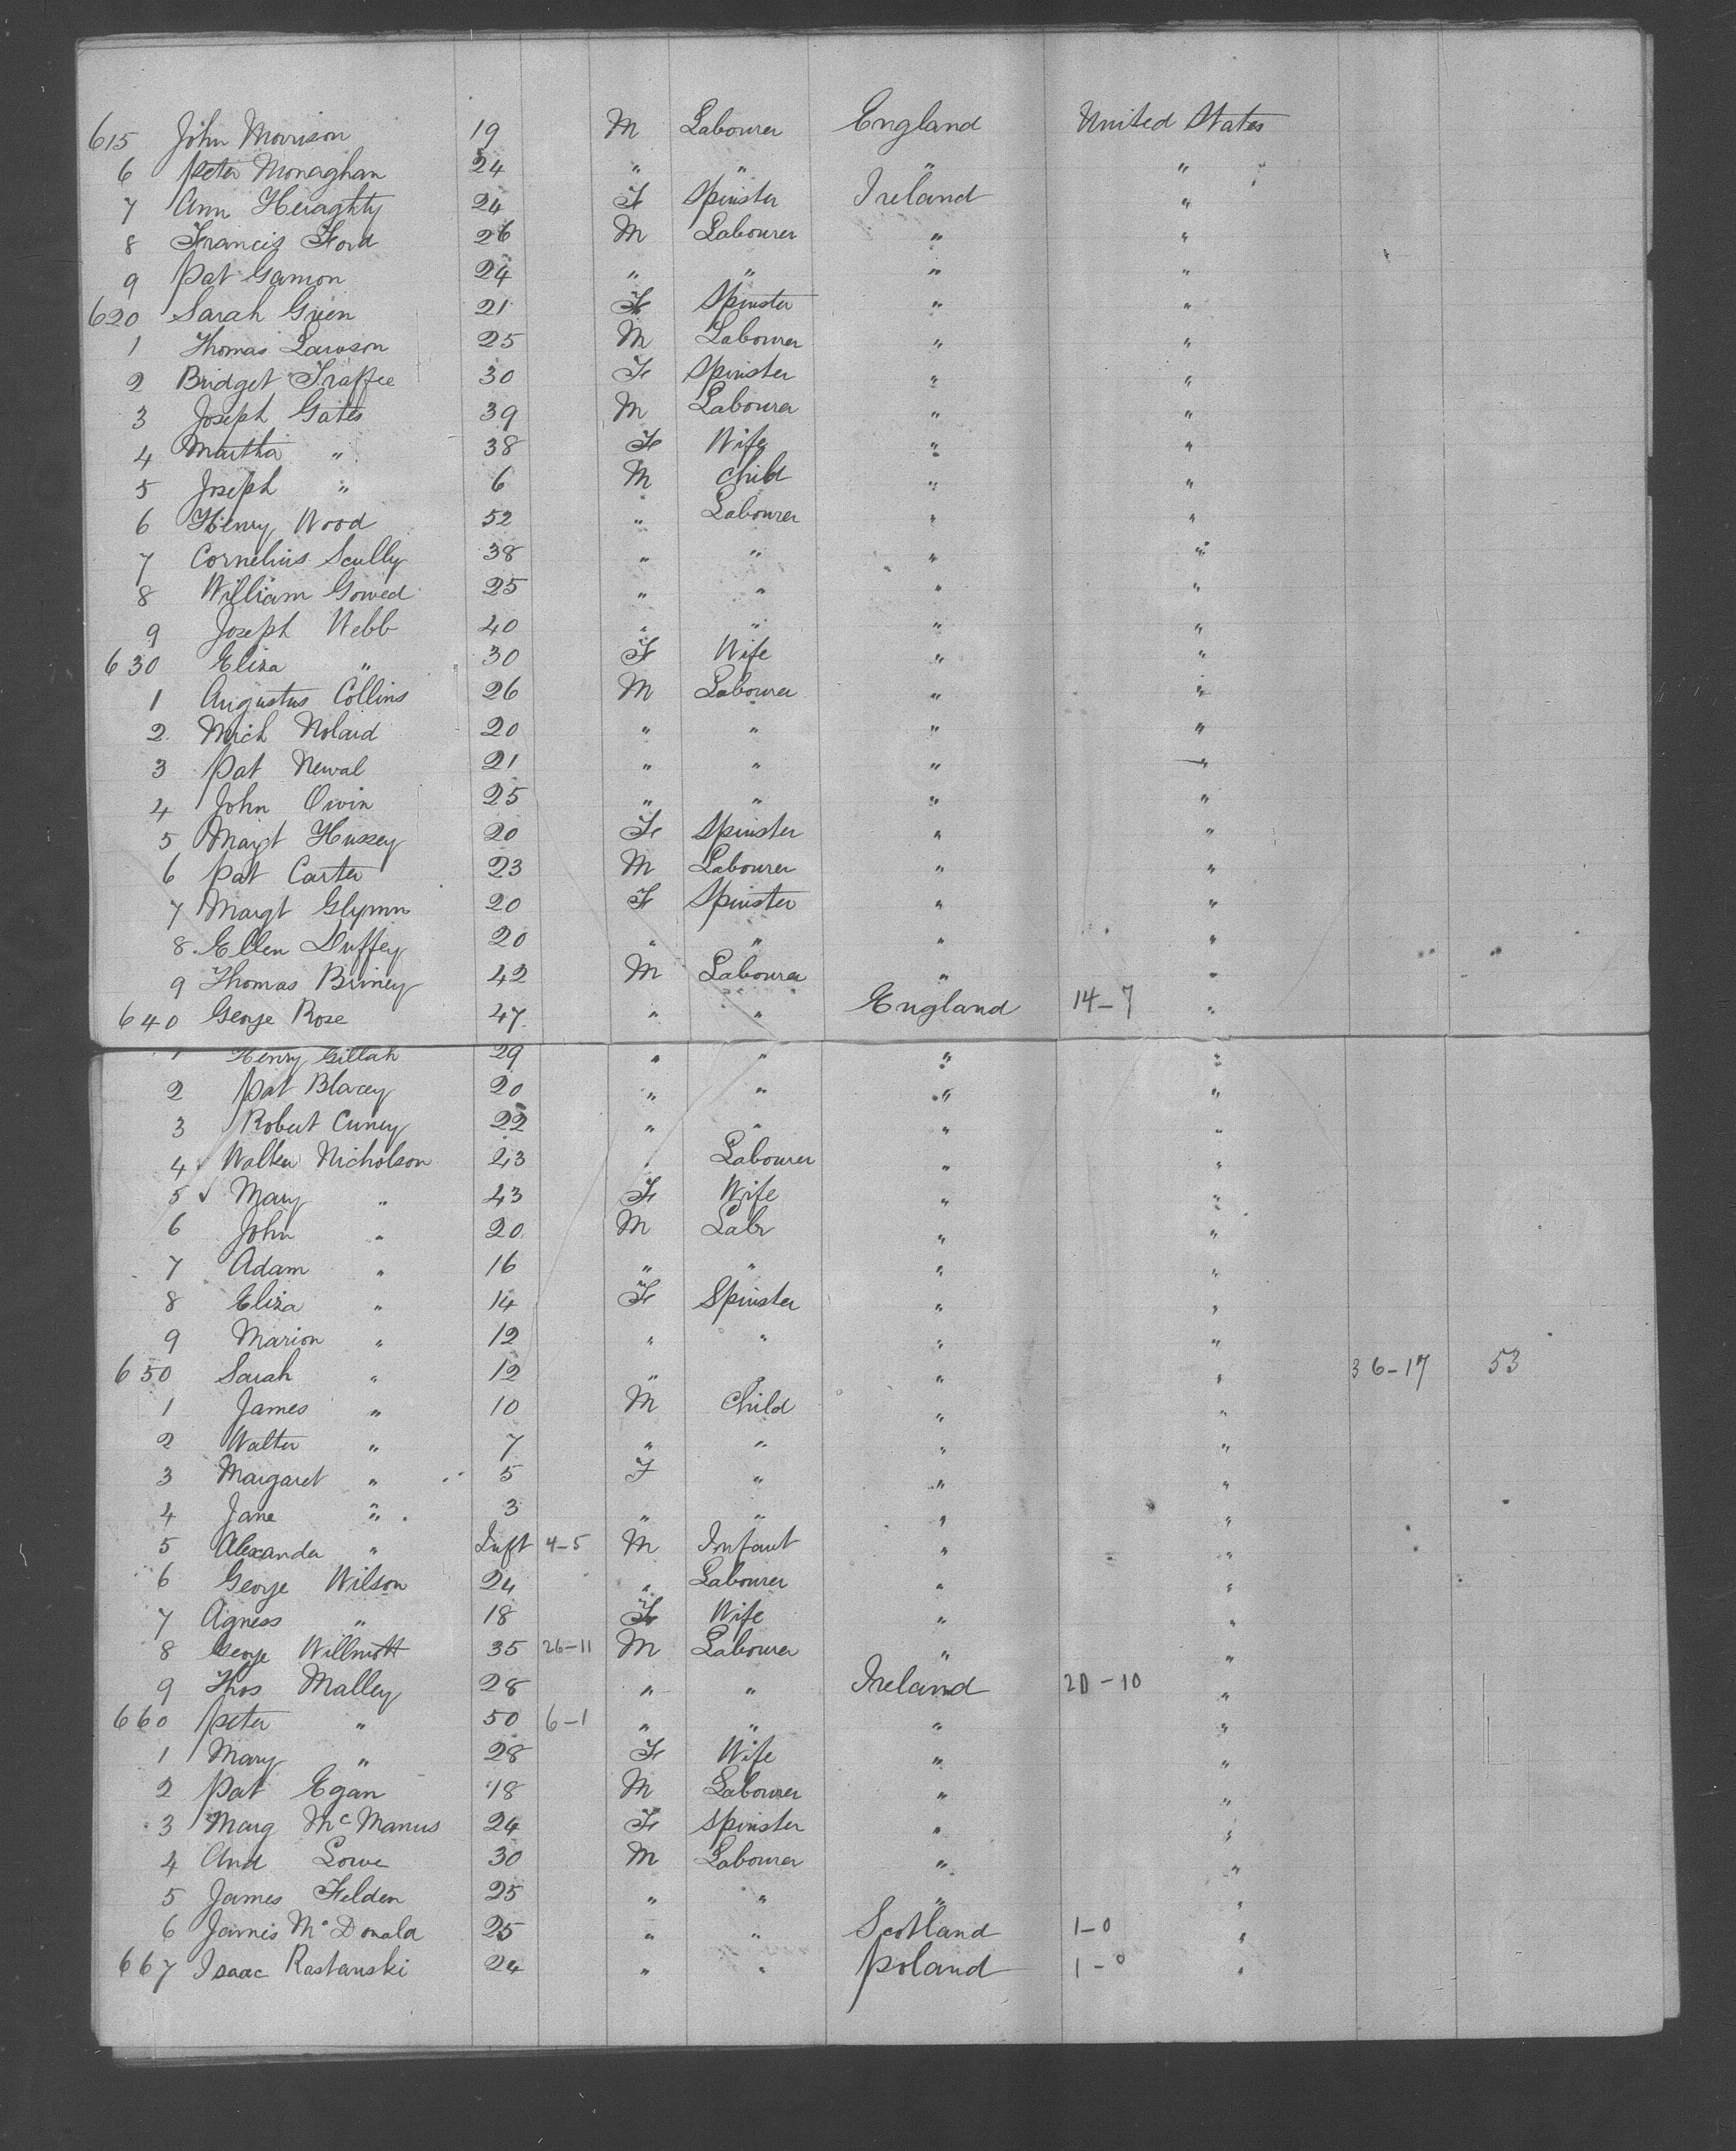 615 John Morrison 19 M Labourer England United States
6 Peter Monaghan 24 " " " "
7 Ann Heraghty 24 F Spinster Ireland "
8 Francis Ford 26 M Labourer " "
9 Pat Gamon 24 " " " "
620 Sarah Green 21 F Spinster " "
1 Thomas Lawson 25 M Labourer " "
2 Bridget 30 F Spinster " "
3 Joseph Gates 39 M Labourer " "
4 Martha " 38 F Wife " "
5 Joseph " 6 M Child " "
6 Henry Wood 52 " Labourer " "
7 Cornelius Scully 38 " " " "
8 William Gowed 25 " " " "
9 Joseph Webb 40 " " " "
630 Eliza " 30 F Wife " "
1 Augustus Collins 26 M Labourer " "
2 Mich Nolaid 20 " " " "
3 Pat Newal 21 " " " "
4 John Owin 25 " " " "
5 Margt Hussey 20 F Spinster " "
6 Pat Carter 23 M Labourer " "
7 Margt Glynn 20 F Spinster " "
8 Ellen Duffey 20 " " " "
9 Thomas Birney 42 M Labourer " "
640 George Rose 47 " " England 14-7 "
1 Henry Gillah 29 " " " "
2 Pat Blacey 20 " " " "
3 Robert Cuney 22 " " " "
4 Walter Nicholson 43 " Labourer " "
5 Mary " 43 F Wife " "
6 John " 20 M Labr " "
7 Adam " 16 " " " "
8 Eliza " 14 F Spinster " "
9 Marion " 12 " " " "
650 Sarah " 12 " " " " 36-17 53
1 James " 10 M Child " "
2 Walter " 7 " " " "
3 Margaret " 5 F " " "
4 Jane " 3 " " " "
5 Alexander " Inft 4-5 M Infant " "
6 George Wilson 24 " Labourer " "
7 Agness " 18 F Wife " "
8 George Willmott 35 26-11 M Labourer " "
9 Thos Malley 28 " " Ireland 20-10 "
660 Peter " 50 6-1 " " " "
1 Mary " 28 F Wife " "
2 Pat Egan 18 M Labourer " "
3 Marg McManus 24 F Spinster " "
4 And Lowe 30 M Labourer " "
5 James Felden 25 " " " "
6 James McDonald 25 " " Scotland 1-0 "
667 Isaac Rastanski 24 " " Poland 1-0 "